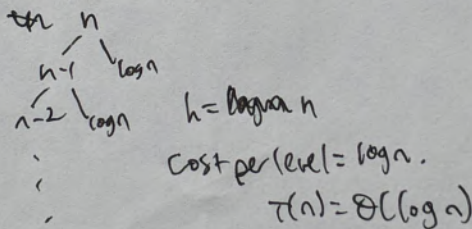 n
n-1 log n
n-2 log n
h = n
cost per level = log n.
T(n) = Θ(log n)